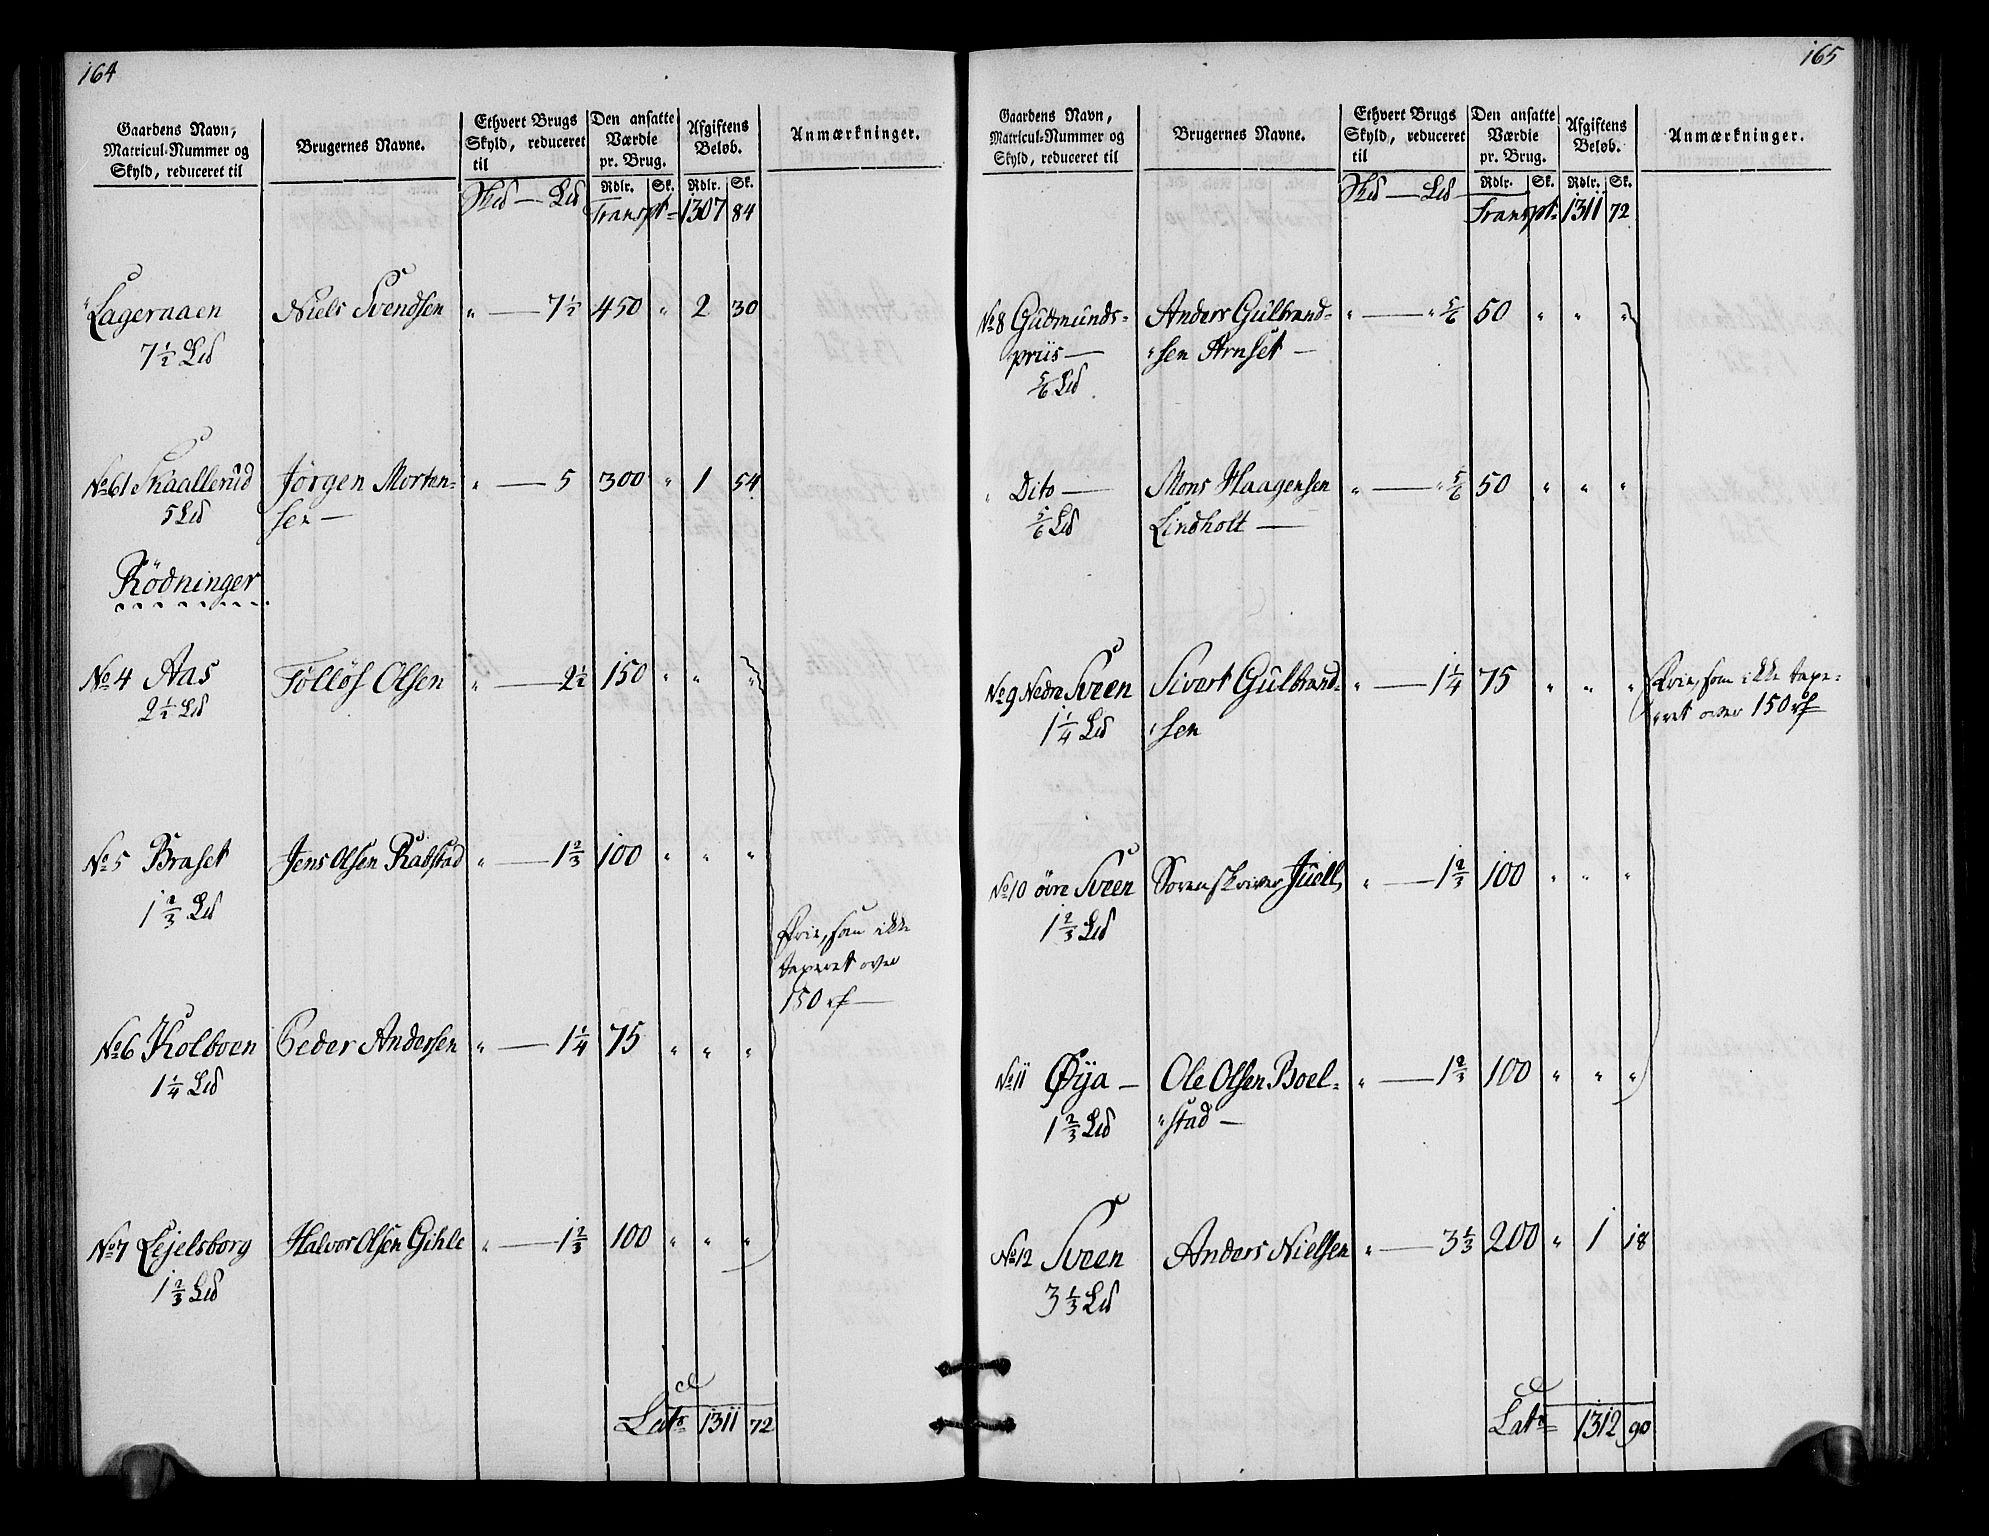 164
Gaardens Navn,
Matricul-Nummer og
Skyld, reduceret til
Brugernes Navne.
Ethvert Brugs
Skyld, reduceret
til
Den ansatte
Værdie
pr. Brug.
Afgiftens
Beløb.
Anmærkninger.
Skd — Ld Rdlr. Sk. Rdlr. Sk.
Transpt 1307 84
Lageraaen Niels Svendsen " — 7½ 450 " 2 30
7½ Ld
No 61 Skaallerud Jørgen Morten- " — 5 300 " 1 54
5 Ld sen —
Rödninger
No 4 Aas Tolløf Olsen " — 2½ 150 " " "
2½ Ld
No 5 Braset Jens Olsen Rabstad " — 1⅔ 100 " " "
1⅔ Ld
Ørie, som ikke
taxeret over
150 rd —
No 6 Kolboen Peder Andersen " — 1¼ 75 " " "
1¼ Ld
No 7 Lejelsborg Halvor Olsen Gihle " — 1⅔ 100 " " "
1⅔ Ld
Lats 1311 72
165
Gaardens Navn,
Matricul-Nummer og
Skyld, reduceret til
Brugernes Navne.
Ethvert Brugs
Skyld, reduceret
til
Den ansatte
Værdie
pr. Brug.
Afgiftens
Beløb.
Anmærkninger.
Skd — Ld Rdlr. Sk. Rdlr. Sk.
Transpt 1311 72
No 8 Gudmunds- Anders Gulbrand- " — " ⅚ 50 " " "
priis — sen Arnset —
⅚ Ld
" Dito — Mons Haagensen " — " ⅚ 50 " " "
⅚ Ld Lindholt —
No 9 Nedre Sveen Sivert Gulbrand- " — 1¼ 75 " " " frie, som ikke taxe-
1¼ Ld sen eret over 150 rd
No 10 øvre Sveen Sorenskriver Juell, " — 1⅔ 100 " " "
1⅔ Ld
No 11 Øÿa — Ole Olsen Boel- " — 1⅔ 100 " " "
1⅔ Ld stad —
No 12 Sveen Anders Nielsen " — 3⅓ 200 " 1 18
3⅓ Ld
Lats 1312 90